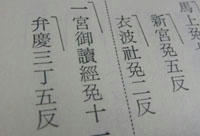 馬上免
新宮免五反
衣波社免二反
一宮御讀經免十一
弁慶三丁五反